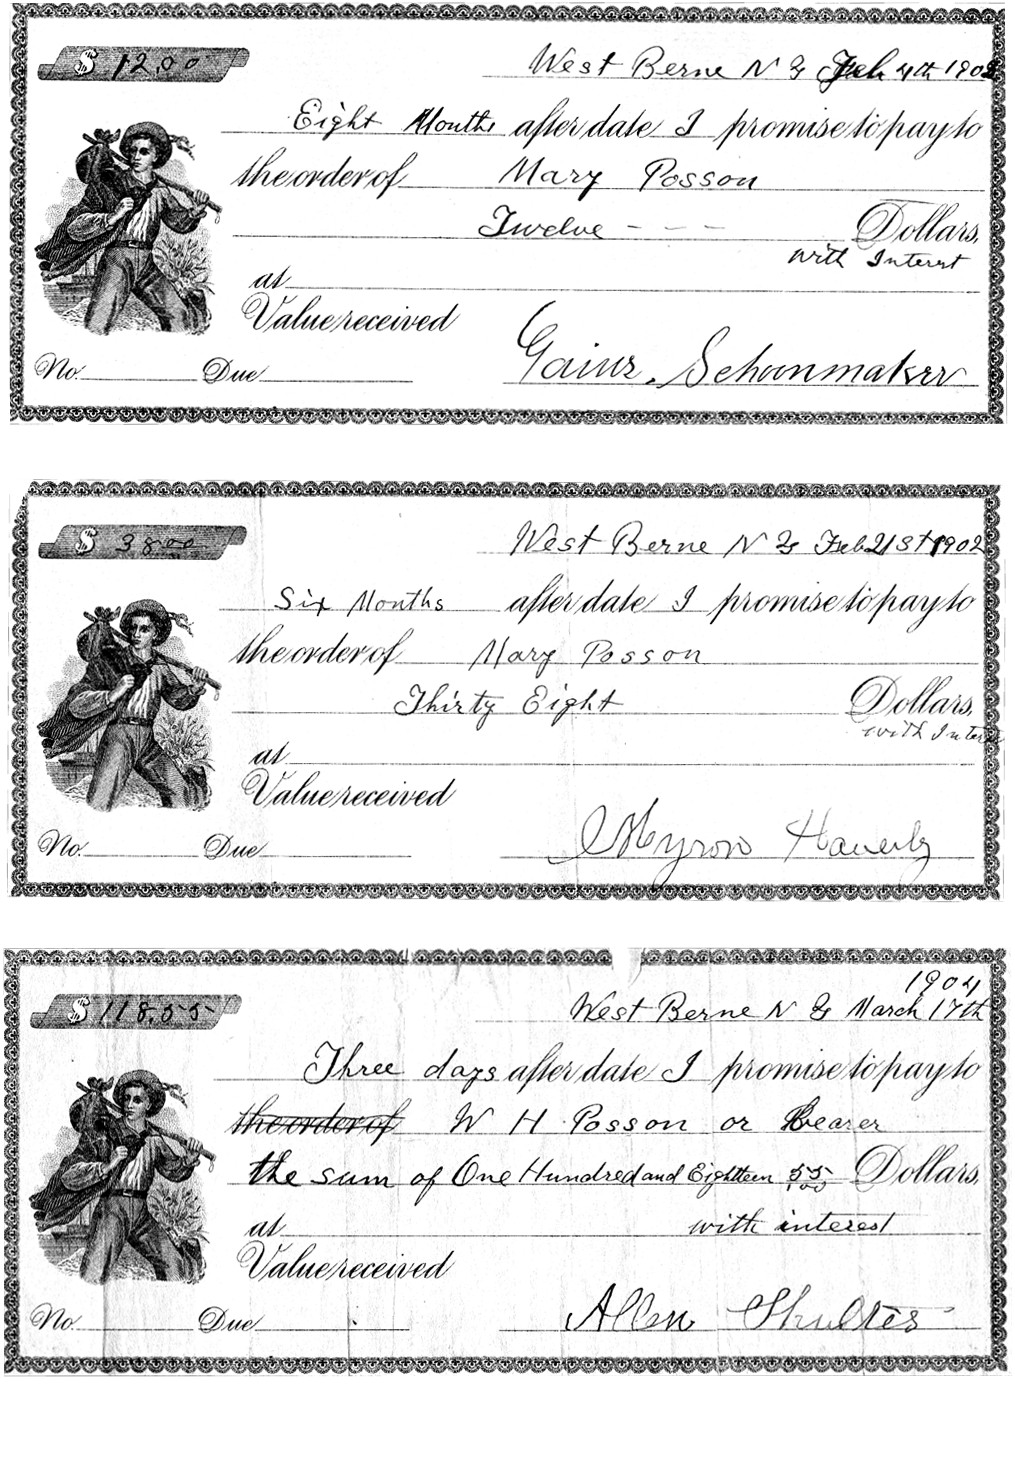 $ 12,00
West Berne N Y Feb 4th 1902
Eight Months after date I promise to pay to
the order of Mary Posson
Twelve - - - Dollars,
with Interest
at
Value received
No. Due Gaius Schoonmaker
$ 38 00
West Berne N Y Feb 21st 1902
Six Months after date I promise to pay to
the order of Mary Posson
Thirty Eight Dollars,
with Inter
at
Value received
No. Due Myron Haverly
1904
$ 118,55
West Berne N Y March 17th
Three days after date I promise to pay to
the order of W H Posson or bearer
the sum of One Hundred and Eighteen 55/100 Dollars,
at with interest
Value received
No. Due Allen Shultes